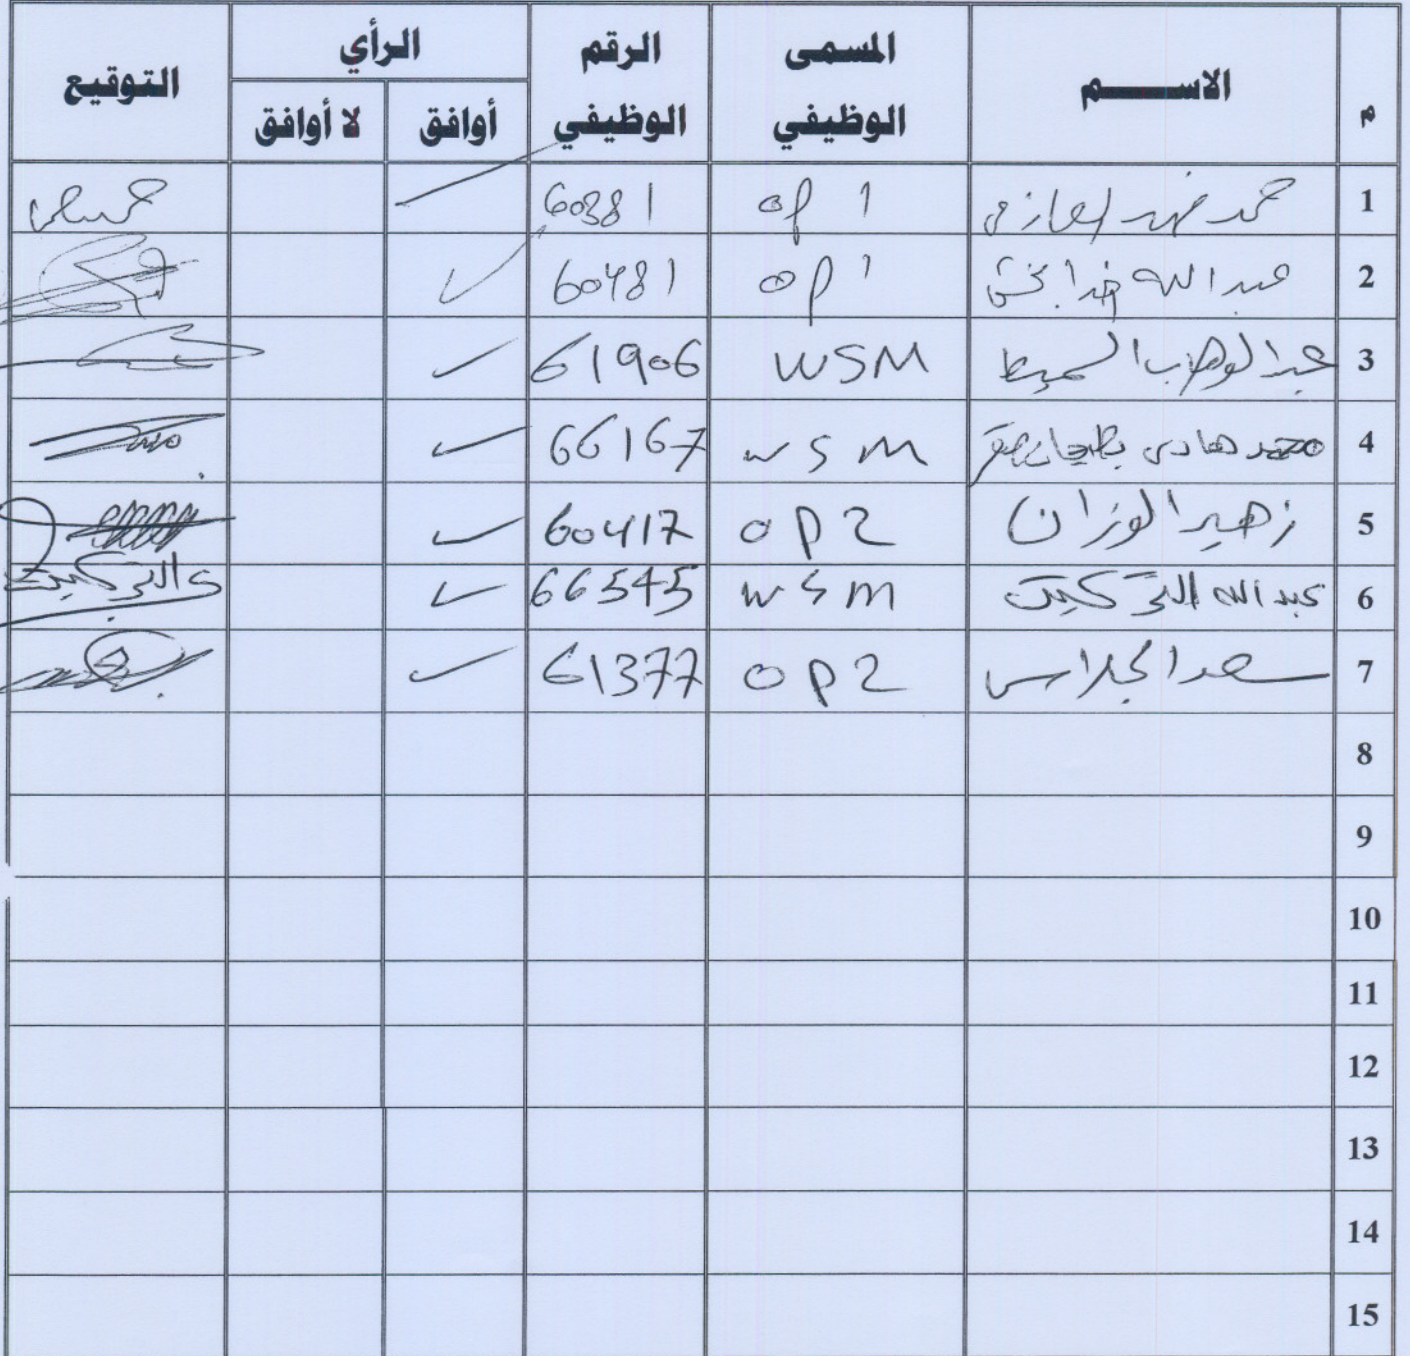 م الاســـــم المسمى الوظيفي الرقم الوظيفي الرأي التوقيع
أوافق لا أوافق
1 حمد فهد العازمي op 1 60381
2 عبدالله خدابخش op 1 60481
3 عبدالوهاب السميط WSM 61906
4 محمد هادي WSM 66167
5 زهير الوزان op2 60417
6 عبدالله التركيت WSM 66545 التركيت
7 سعد الجلاس op2 61377
8
9
10
11
12
13
14
15